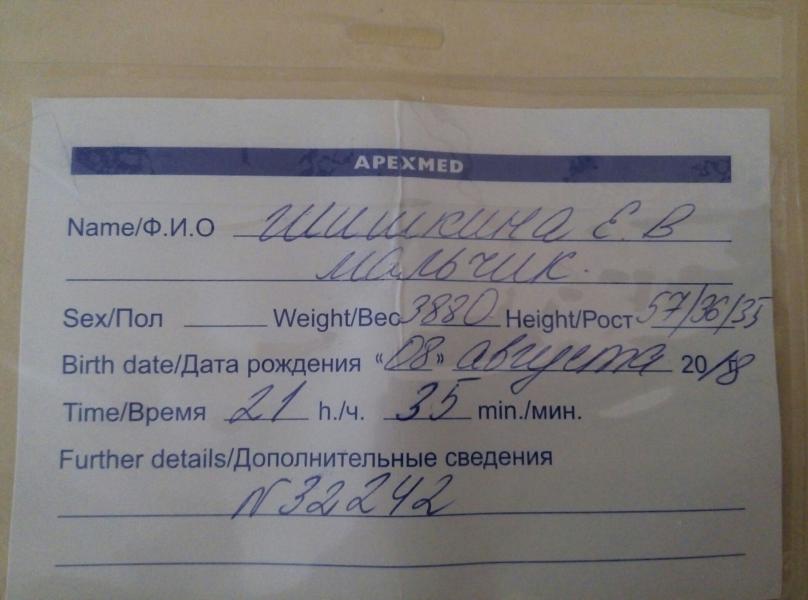 APEXMED
Name/Ф.И.О Шишкина Е.В
мальчик.
Sex/Пол Weight/Вес 3880 Height/Рост 57/36/35
Birth date/Дата рождения «08» августа 2018
Time/Время 21 h./ч. 35 min./мин.
Further details/Дополнительные сведения
N32242